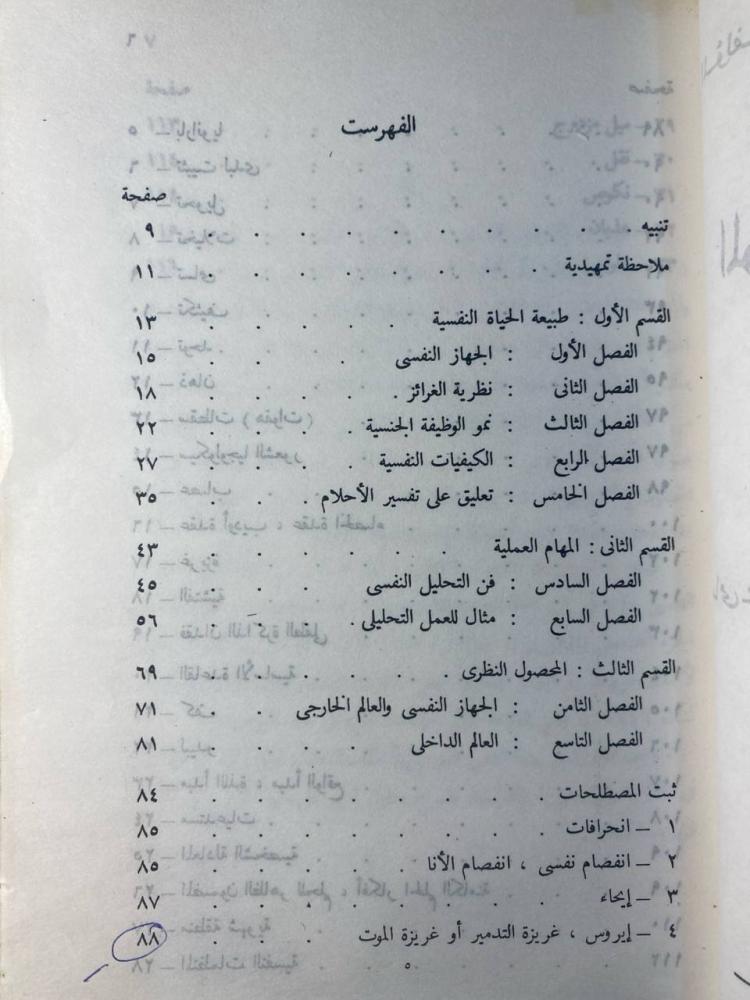 الفهرست
صفحة
تنبيه . . . . . . . . . ٩
ملاحظة تمهيدية . . . . . . . . ١١
القسم الأول : طبيعة الحياة النفسية . . . . . ١٣
الفصل الأول : الجهاز النفسى . . . . ١٥
الفصل الثانى : نظرية الغرائز . . . . ١٨
الفصل الثالث : نمو الوظيفة الجنسية . . . . ٢٢
الفصل الرابع : الكيفيات النفسية . . . . ٢٧
الفصل الخامس : تعليق على تفسير الأحلام . . . ٣٥
القسم الثانى : المهام العملية . . . . . . ٤٣
الفصل السادس : فن التحليل النفسى . . . . ٤٥
الفصل السابع : مثال للعمل التحليلى . . . . ٥٦
القسم الثالث : المحصول النظرى . . . . . ٦٩
الفصل الثامن : الجهاز النفسى والعالم الخارجى . . ٧١
الفصل التاسع : العالم الداخلى . . . . ٨١
ثبت المصطلحات . . . . . . . . ٨٤
١ – انحرافات . . . . . . . . ٨٥
٢ – انفصام نفسى ، انفصام الأنا . . . . . ٨٥
٣ – إيحاء . . . . . . . . ٨٧
٤ – إيروس ، غريزة التدمير أو غريزة الموت . . . ٨٨
٥